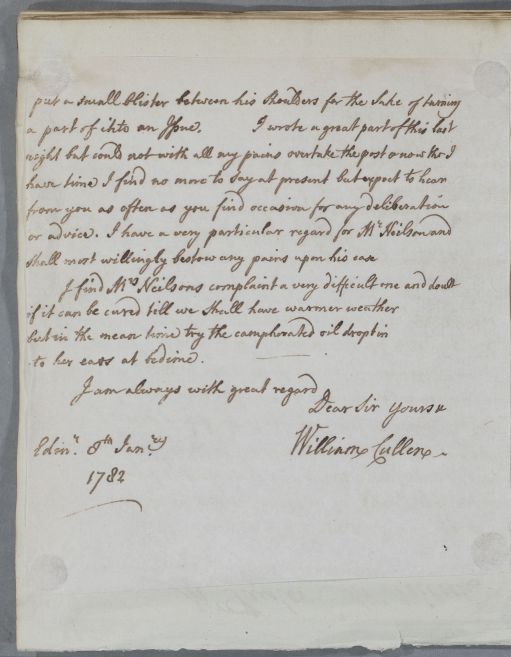 put a small blister between his shoulders for the sake of turning
a part of it into an Issue. I wrote a great part of this last
night but could not with all my pains overtake the post & now tho I
have time I find no more to say at present but expect to hear
from you as often as you find occasion for any deliberation
or advice. I have a very particular regard for Mr Neilson and
shall most willingly bestow any pains upon his case
I find Mrs Neilsons complaint a very difficult one and doubt
if it can be cured till we shall have warmer weather
but in the mean time try the camphorated oil dropt in
to her ears at bedime.
I am always with great regard
Dear Sir yours
William Cullen
Edinr. 8th Janry
1782